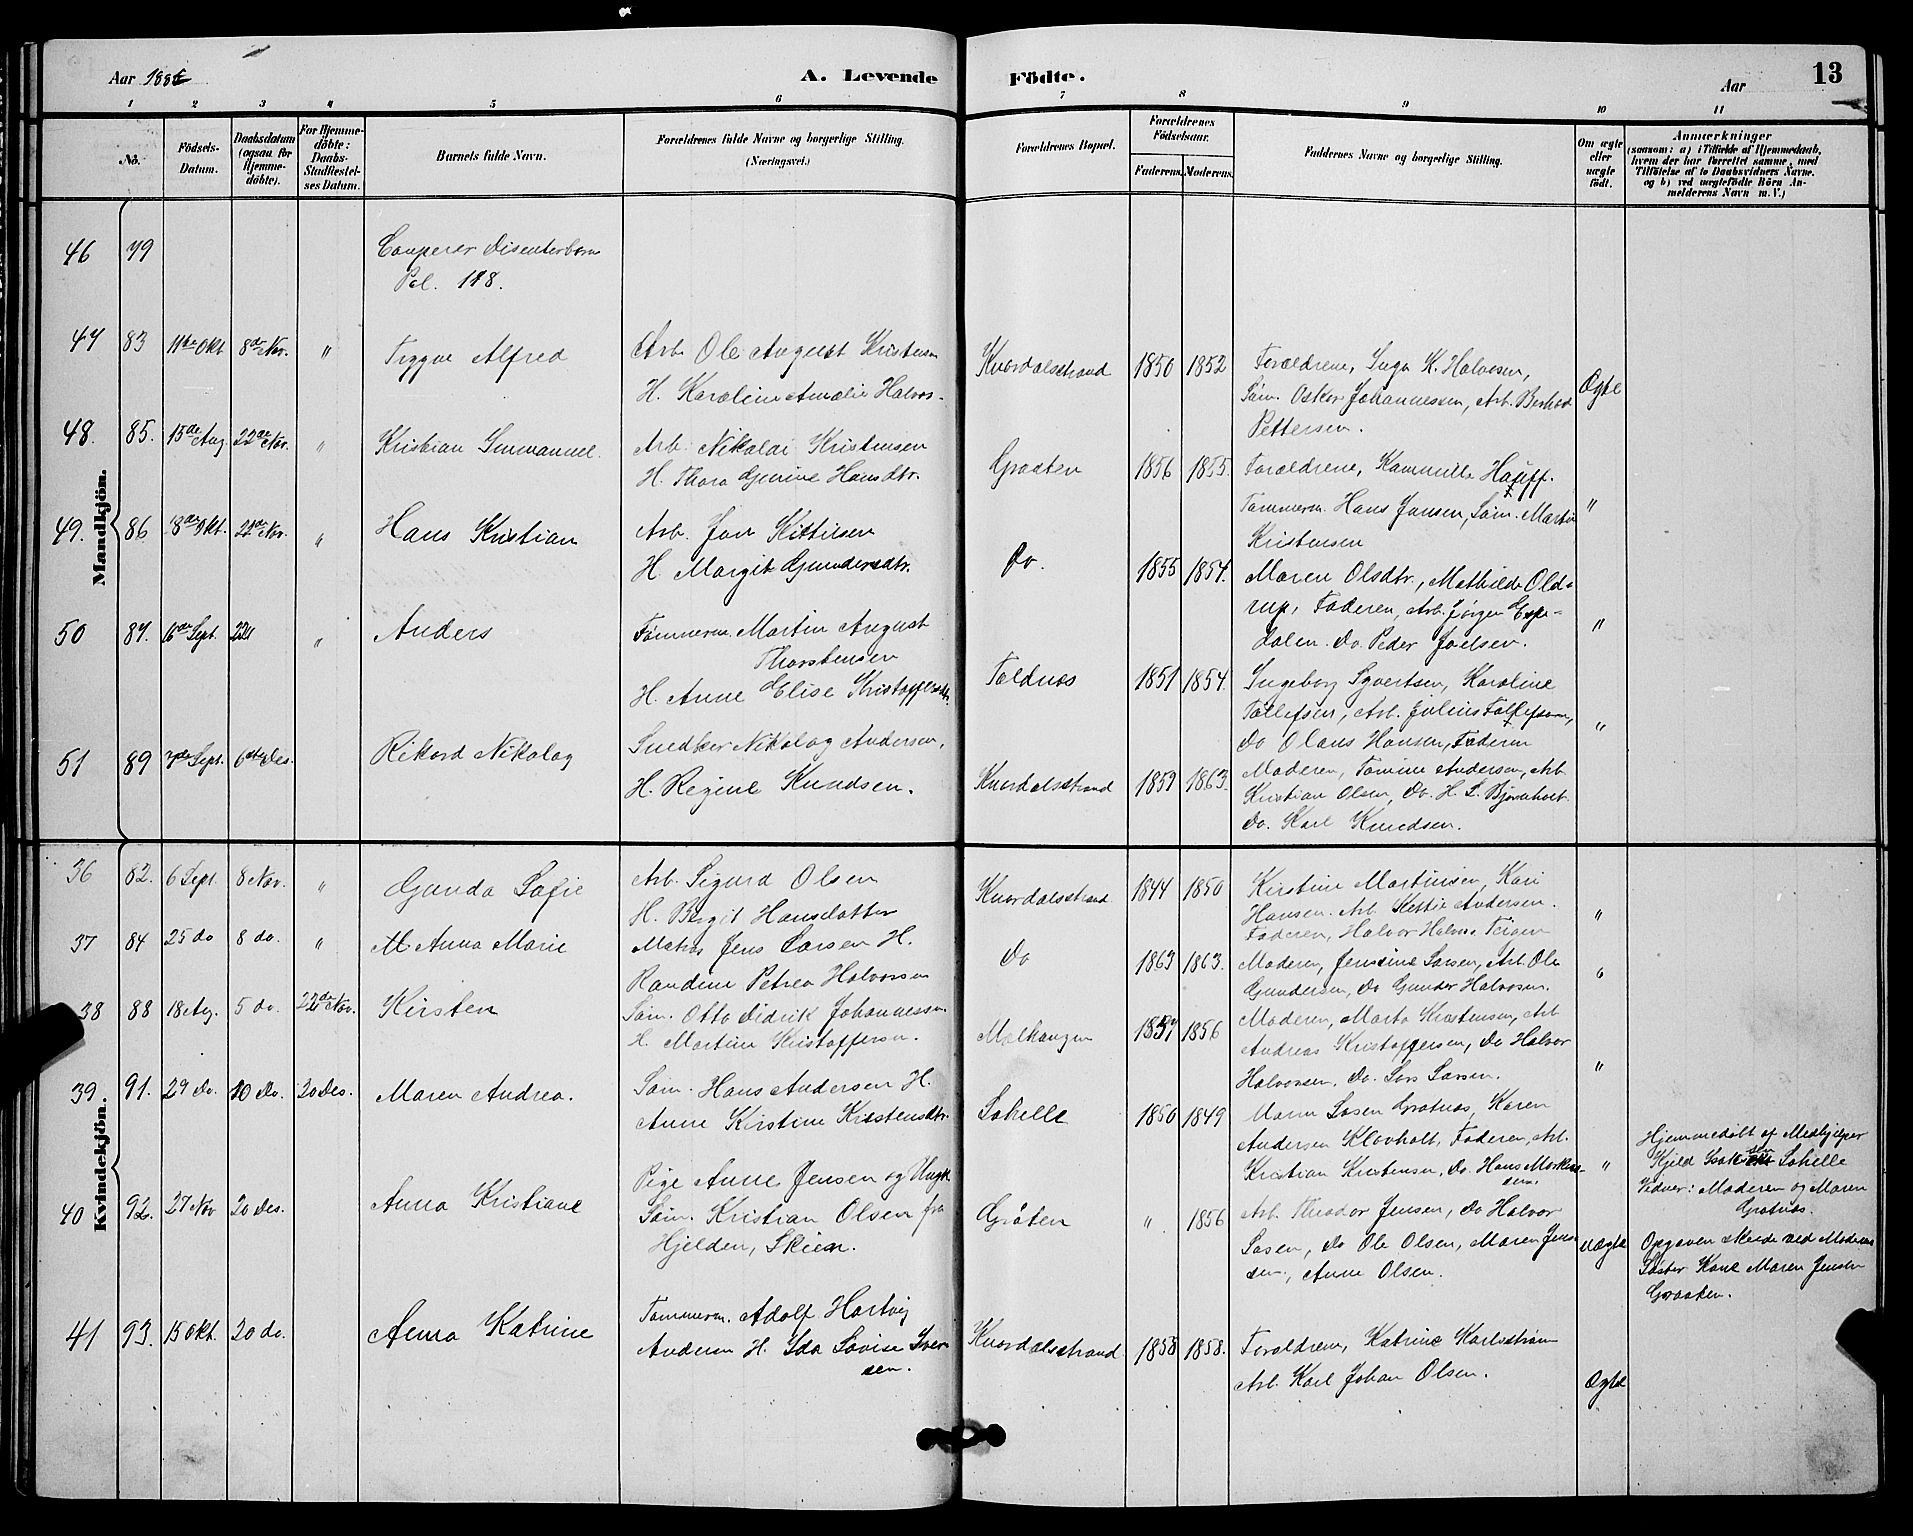 Aar 188
A. Levende
Födte.
Aar
13
1 2 3 4 5 6 7 8 9 10 11
No.
Födsels-
Datum.
Daabsdatum
(ogsaa for
Hjemme-
döbte).
For Hjemme-
döbte:
Daabs-
Stadfæstel-
ses Datum.
Barnets fulde Navn.
Forældrenes fulde Navne og borgerlige Stilling.
(Næringsvei.)
Forældrenes Bopæl.
Forældrenes
Födselsaar.
Faderens. Moderens.
Faddernes Navne og borgerlige Stilling.
Om ægte
eller
uægte
födt.
Anmærkninger
(saasom: a) i Tilfælde af Hjemmedaab,
hvem der har forrettet samme, med
Tilföielse af to Daabsvidners Navne.
og b) ved uægtefödte Börn An-
melderens Navn m. V.)
Mandkjön.
46 79
Conferer Disenterbarn
Pol. 118.
47 83 11te Okt 8de Nov. " Trygve Alfred
Arb. Ole August Kristensen
H. Karoline Amalie Halvors.
Knardalsstrand 1850 1852
Forældrene, Inga K. Halvosen,
Søm. Oskar Johannessen, Arb. Berhard
Pettersen.
Ægte
48. 85. 15de Aug 22de Nov. " Kristian Emmanuel.
Arb. Nikolai Kristensen
H. Thora Gjurine Hansdtr.
Graaten 1856 1855.
Forældrene, Kammilla Hauff.
Tømmerm. Hans Jansen, Søm. Martin
Kristensen
"
49. 86 18de Okt. 22de Nov. " Hans Kristian
Arb. Jon Kittilsen
H. Margit Gundersdtr.
Do. 1855 1854.
Maren Olsdtr., Mathilde Old-
rup, Faderen, Arb. Jørgen Espe-
dalen. Do. Peder Joelsen.
"
50 87. 6te Sept. 22 " Anders
Tømmerm. Martin August
Thorstensen
H. Anne Elise Kristoffersdtr.
Faldnes 1851 1854.
Ingeborg Syvertsen, Karoline
Tollefsen, Arb. Julius Tollefsen,
Do Olaus Hansen, Faderen
"
51 89 7de Sept. 6te Des. Rikard Nikolay
Snedker Nikolay Andersen,
H. Regine Knudsen.
Knardalsstrand 1859 1863.
Moderen, Tomine Andersen, Arb.
Kristian Olsen, Do. H. L. Bjørnholt.
Do. Karl Knudsen.
Kvindekjön.
36 82. 6 Sept. 8 Nov. " Gunda Sofie
Arb. Sigurd Olsen
H. Birgit Hansdatter
Knardalsstrand 1844 1850
Kirstine Martinsen, Kari
Hansen. Arb. Kittil Andersen.
Faderen, Halvor Halvors. Teigen
"
37 84 25 do 8 do. " M Anna Marie
Matros Jens Larsen H.
Randine Petrea Halvorsen
Do 1863 1863.
Moderen, Jensine Larsen, Arb. Ole
Gundersen, Do Gunder Halvosen.
"
38 88 18 Aug. 5 do. 22de Nov. Kirsten
Søm. Otto Didrik Johannessen
H. Martine Kristoffersen.
Mælhaugen 1857 1856
Moderen, Marta Kristensen, Arb
Andreas Kristoffersen, Do Halvor
Halvorsen, Do. Lars Larsen.
"
39 91. 29 do. 10 Do. 20 Des. Maren Andrea.
Søm. Hans Andersen H.
Anne Kirstine Kristensdtr.
Solielle 1850 1849
Maren Larsen Gratnæs, Karen
Andersen Klovholt, Faderen, Arb.
Kristian Kristensen, Do. Hans Markus-
sen.
"
Hjemmedøbt af Medhjelper
Kjeld Isaksen Solielle
Vidner: Moderen og Maren
Gratnæs.
40 92. 27 Nov 20 Des. Anna Kristiane
Pige Anne Jensen og Ungk.
Søm. Kristian Olsen fra
Hjelden, Skien.
Gråten " 1856
Arb. Theodor Jensen, Do Halvor
Larsen, Do Ole Olsen, Maren Jen-
sen, Anne Olsen.
uægte
Opgaven skeede ved Moderens
Søster Kone Maren Jensen
Graaten.
41 93. 15 Okt. 20 do. Anna Katrine
Tømmerm. Adolf Hartvig
Andersen H. Ida Lovise Iver-
sen.
Knardalsstrand 1858 1858.
Forældrene, Katrine Karlsstrøm
Arb. Karl Johan Olsen.
Ægte